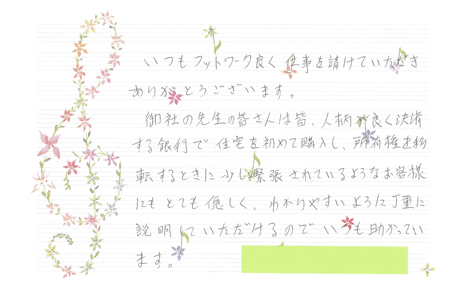 いつもフットワーク良く仕事を請けていただき
ありがとうございます。
御社の先生の皆さんは皆、人柄が良く決済
する銀行で住宅を初めて購入し、所有権を移
転するときに少し緊張されているようなお客様
にもとても優しく、わかりやすいように丁重に
説明していただけるのでいつも助かってい
ます。